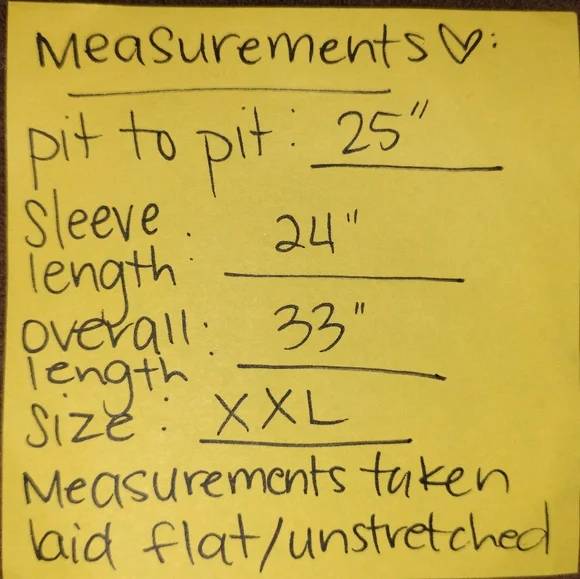 Measurements♡:
pit to pit: 25"
Sleeve
length: 24"
overall
length: 33"
Size: XXL
Measurements taken
laid flat/unstretched